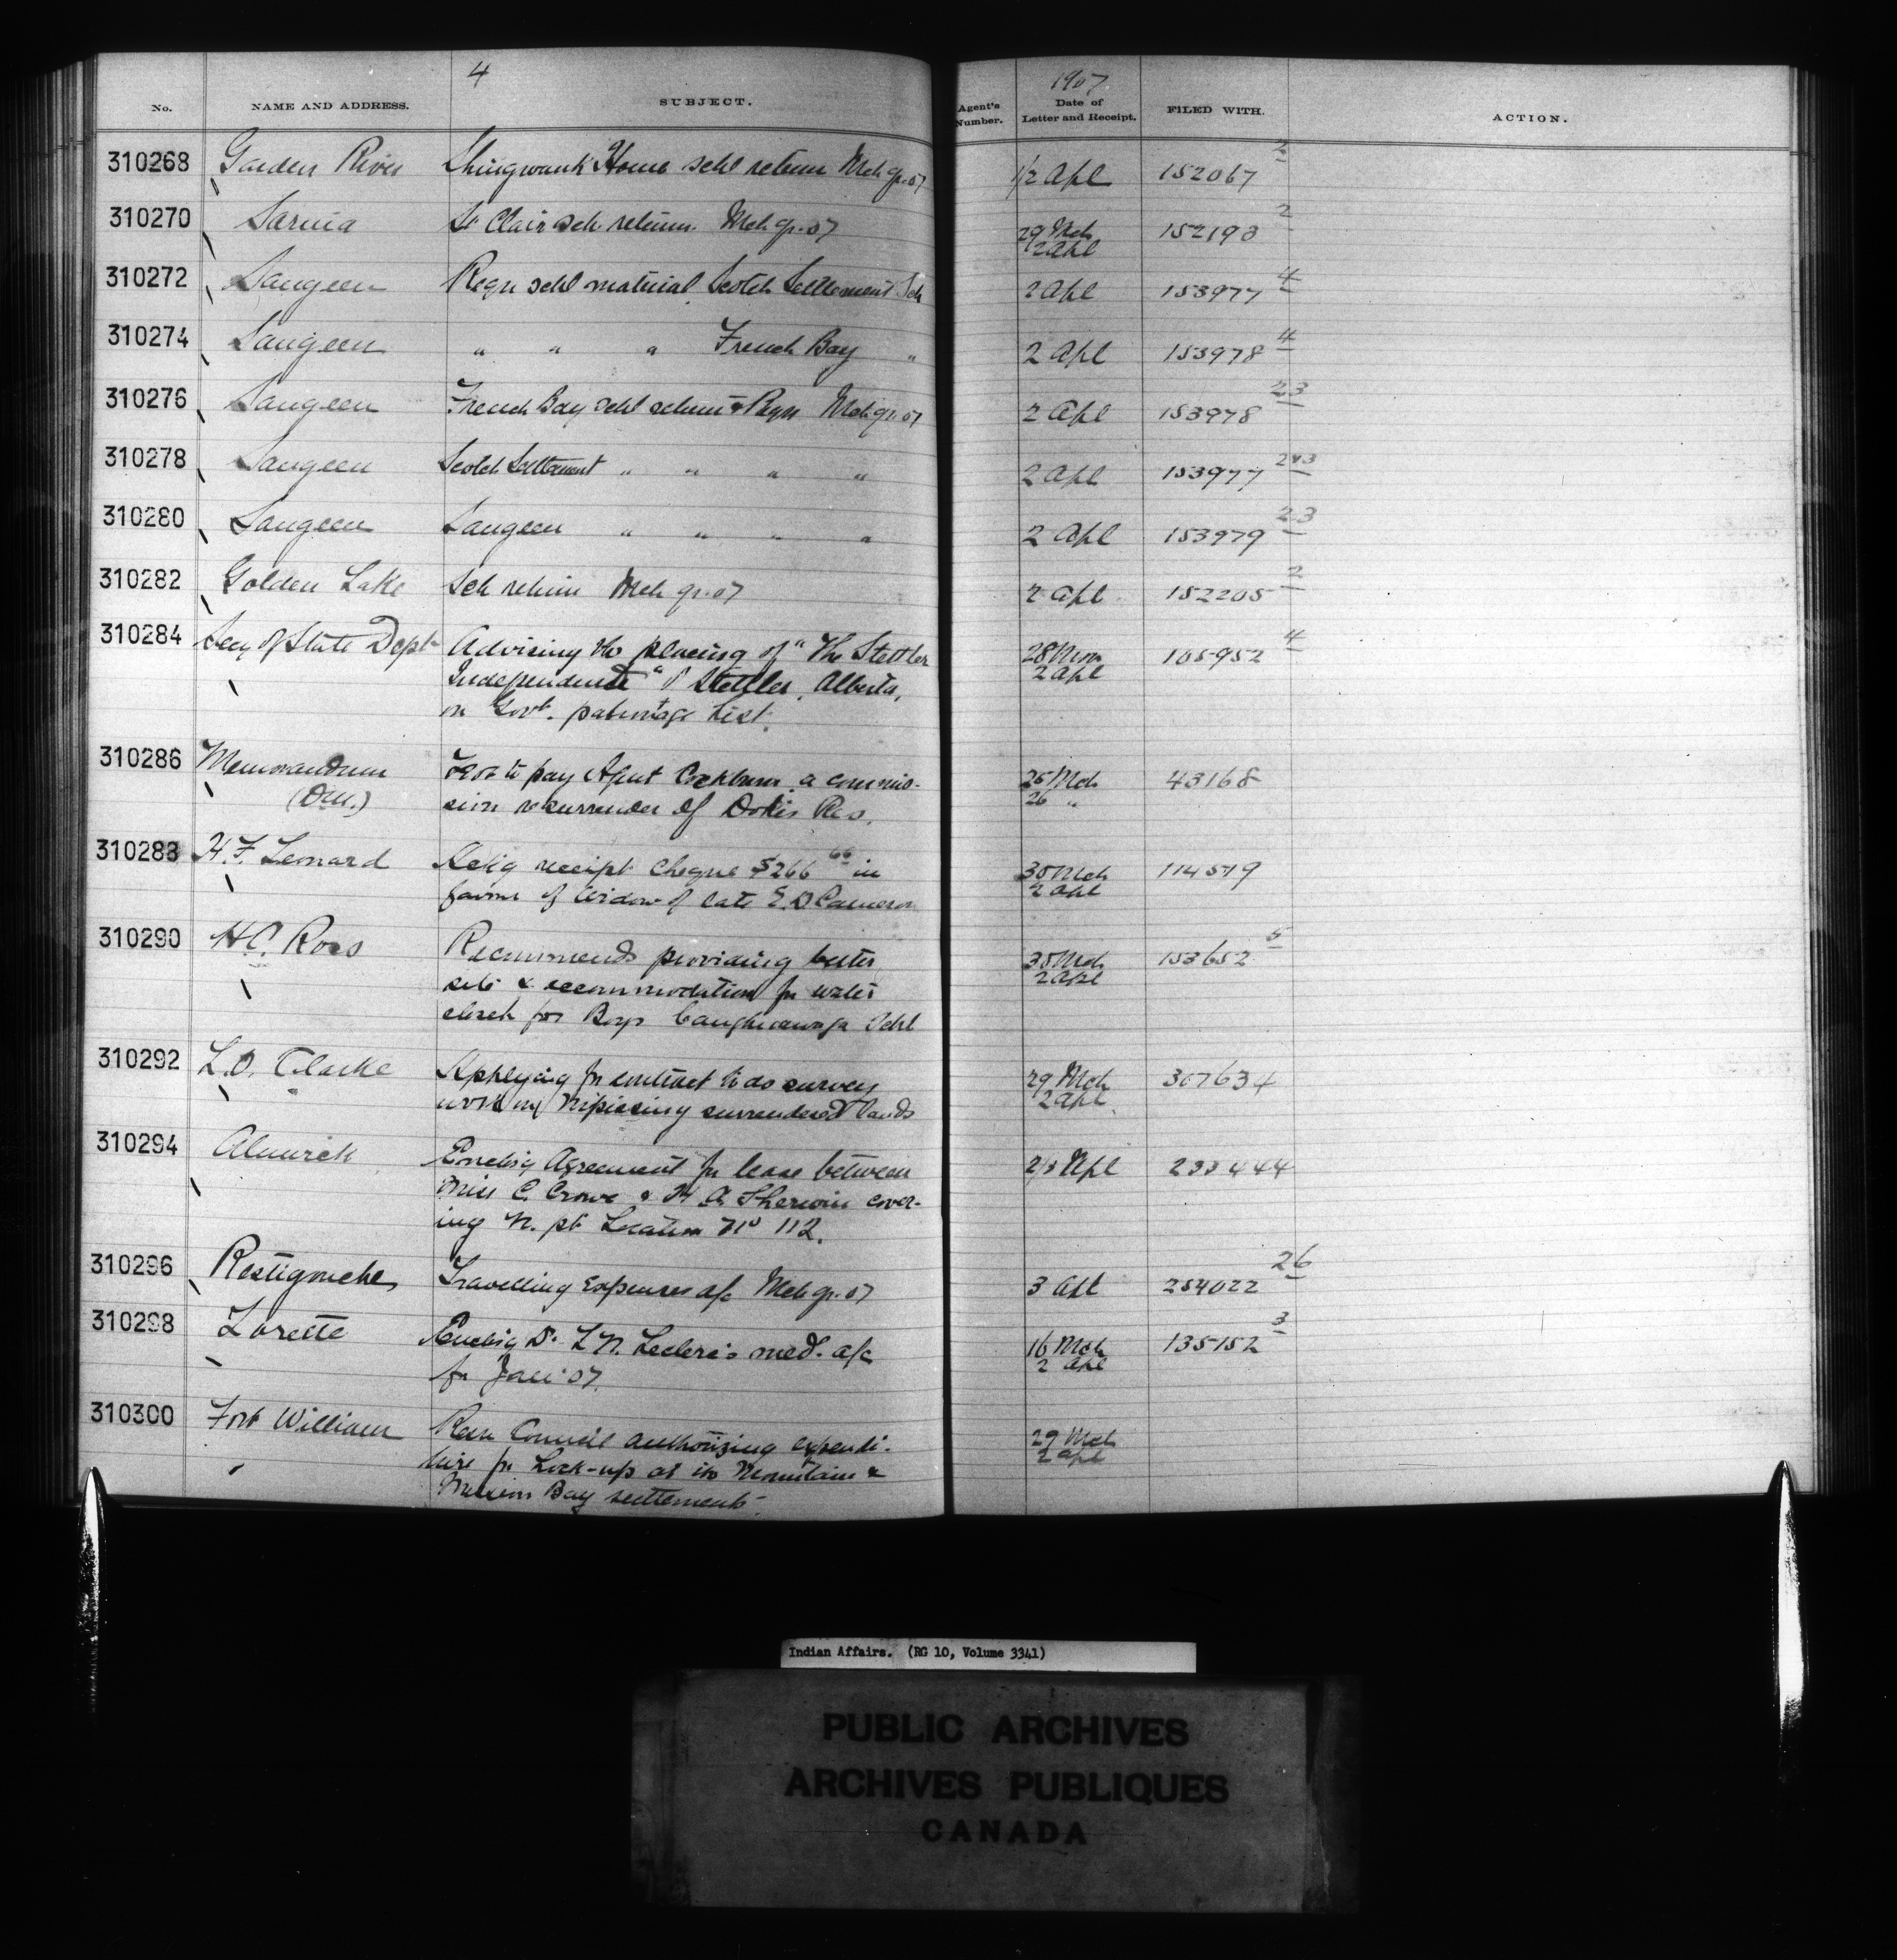 4
1907
No. NAME AND ADDRESS. SUBJECT. Agent's Number. Date of Letter and Receipt. FILED WITH. ACTION.
310268 Garden River Shingwauk Home schl return Mch qr. 07 1/2 Apl 152067 2
310270 Sarnia St Clair sch return Mch qr. 07 29 Mch 152193 2
2 Apl
310272 Saugeen Reqn schl material Scotch Settlement Sch 2 Apl 153977 4
310274 Saugeen " " " French Bay " 2 Apl 153978 4
310276 Saugeen French Bay schl return & Reqn Mch qr. 07 2 Apl 153978 23
310278 Saugeen Scotch Settlement " " " " 2 Apl 153977 2&3
310280 Saugeen Saugeen " " " " 2 Apl 153979 23
310282 Golden Lake Sch return Mch qr. 07 2 Apl 152205 2
310284 Secy of State Dept Advising the placing of "The Stettler 28 105952 4
Independent" of Stettler, Alberta, 2 Apl
on Govt. patronage list.
310286 Memorandum to pay Agent Cockburn a commis- 25 Mch 43168
sion re surrender of Dokis Res. 26 "
310288 H. F. Leonard Ackg receipt cheque $266 66 in 30 Mch 114579
favour of widow of late E. D Cameron 2 Apl
310290 H. C. Ross Recommends providing better 30 Mch 153652 5
site & accommodation for water 2 Apl
closet for Boys Caughnawaga Schl
310292 L. O. Clarke Applying for contract to do survey 29 Mch 307634
work on Nipissing surrendered lands 2 Apl
310294 Alnwick Enclosg Agreement for lease between 2/3 Apl 233444
Miss C. Crowe & H A Sherwin cover-
ing N. pt Location No 112.
310296 Restigouche Travelling Expenses a/c Mch qr. 07 3 Apl 254022 26
310298 Lorette Enclosg Dr. L N. Leclerc's med. a/c 16 Mch 135152 3
for Jan '07. 2 Apl
310300 Fort William Resn Council authorizing expendi- 29 Mch
ture for Lock-up at the Mountain & 2 Apl
Mission Bay settlements.
Indian Affairs. (RG 10, Volume 3341)
PUBLIC ARCHIVES
ARCHIVES PUBLIQUES
CANADA